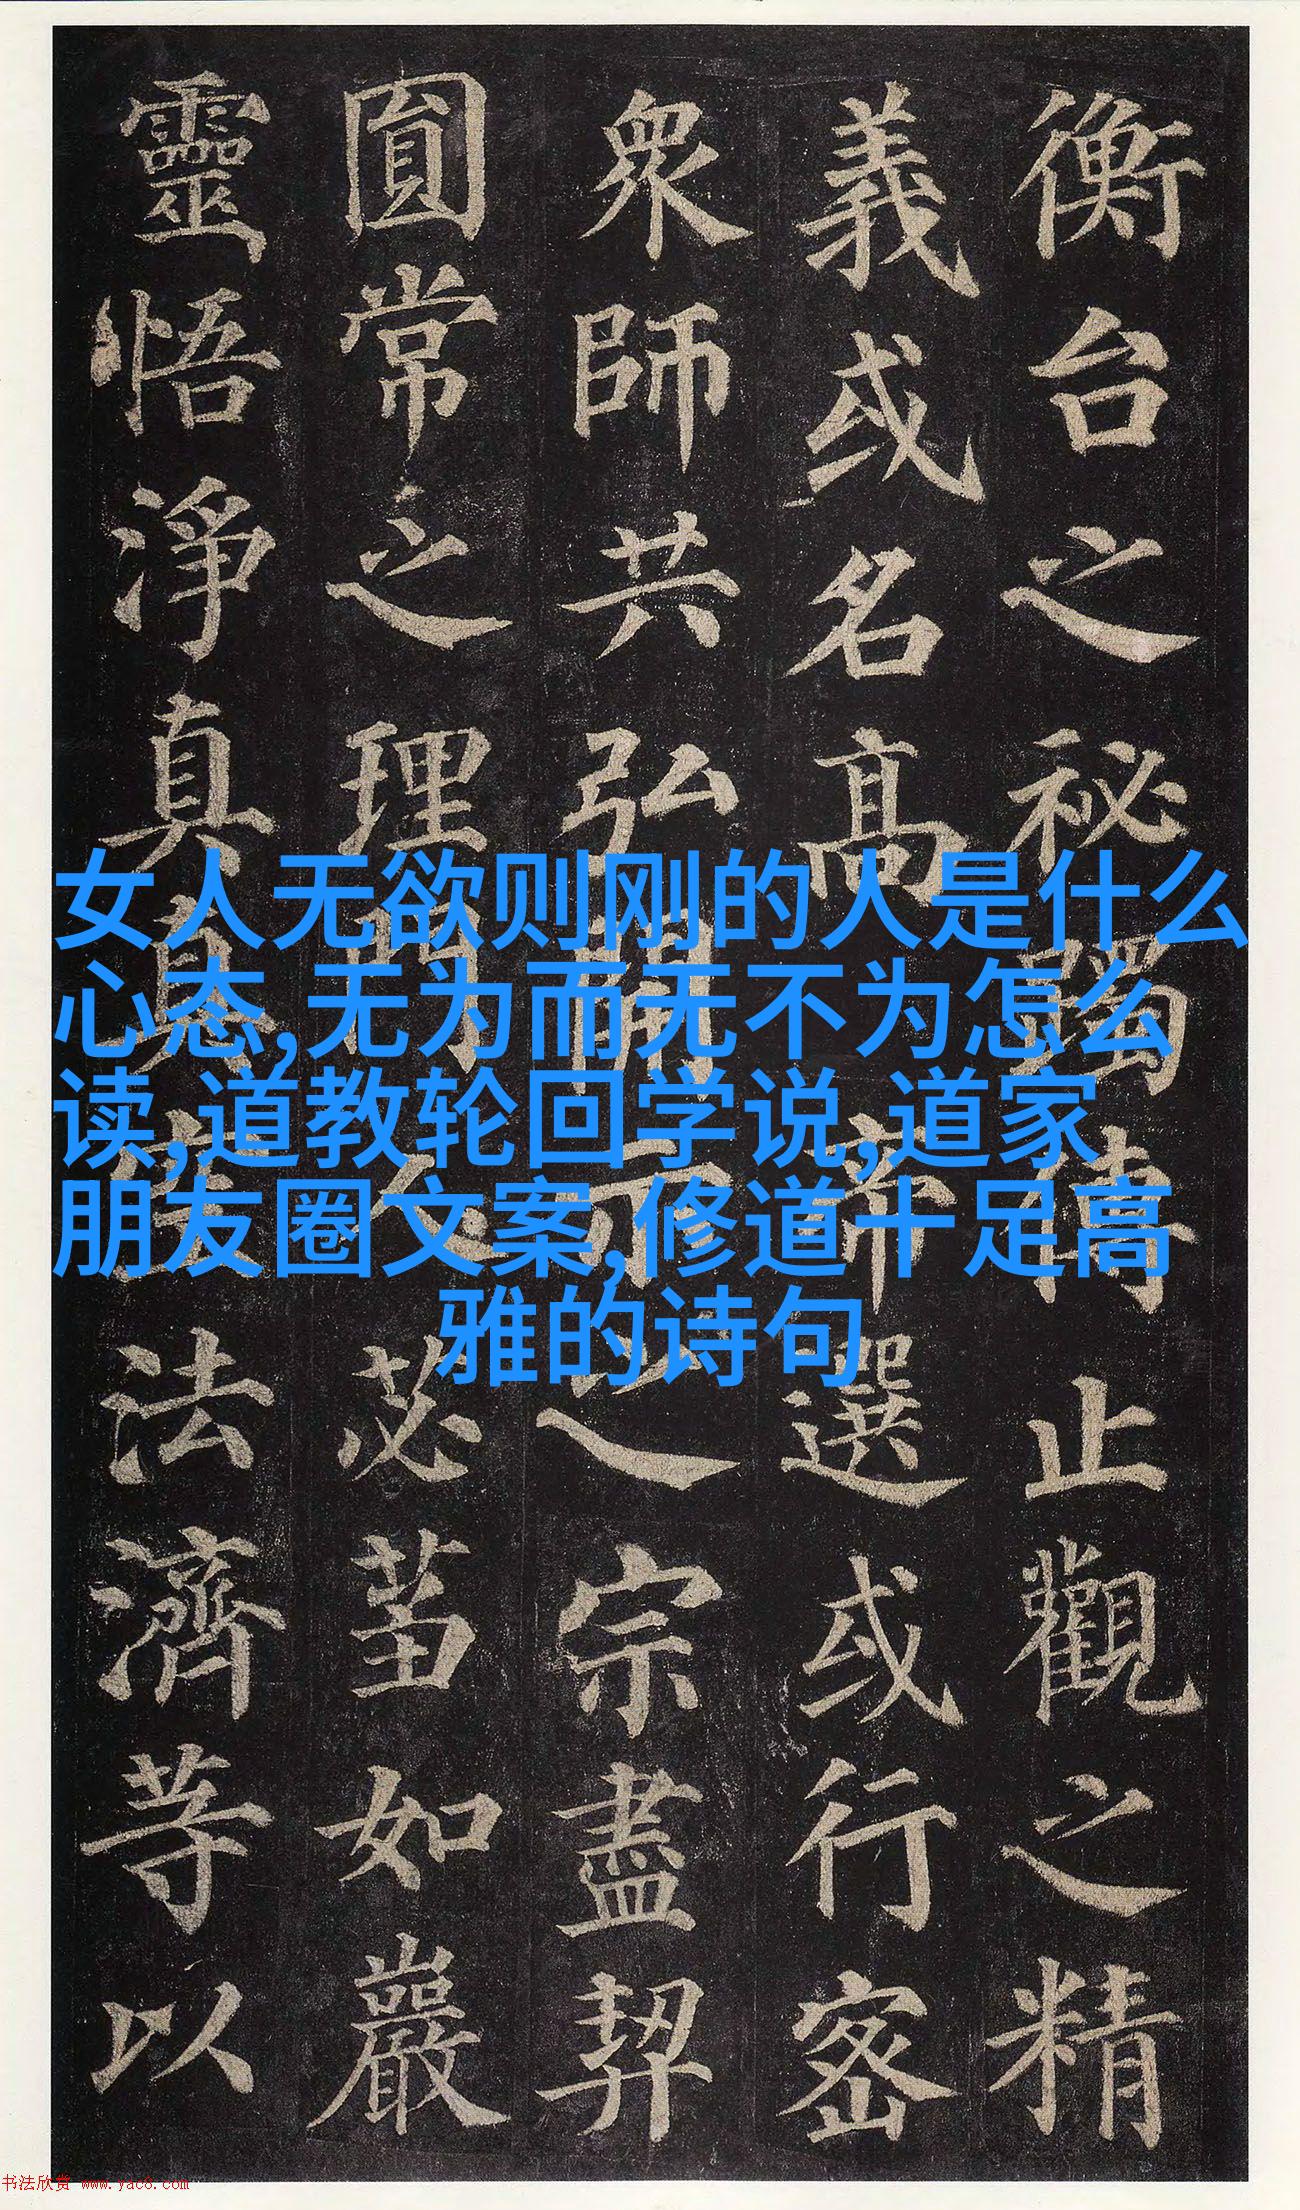 衡台之秘躅傳止觀之精
義或名高帝選或行密
衆師共弘開示之宗盡契
圓常之理門人苾芻如巖
靈悟淨真真法濟等以
女人无欲则刚的人是什么
心态,无为而无不为怎么
读,道教轮回学说,道家
朋友圈文案,修道十足高
雅的诗句
书法欣赏 www.yac8.com